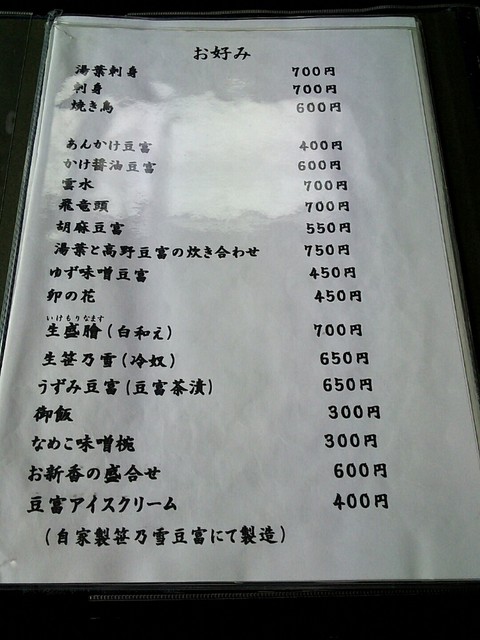 お好み
湯葉刺身 700円
刺身 700円
焼き鳥 600円
あんかけ豆富 400円
かけ醤油豆富 600円
雲水 700円
飛竜頭 700円
胡麻豆富 550円
湯葉と高野豆富の炊き合わせ 750円
ゆず味噌豆富 450円
卯の花 450円
いけもりなます
生盛膾(白和え) 700円
生笹乃雪(冷奴) 650円
うずみ豆富(豆富茶漬) 650円
御飯 300円
なめこ味噌椀 300円
お新香の盛合せ 600円
豆富アイスクリーム 400円
(自家製笹乃雪豆富にて製造)